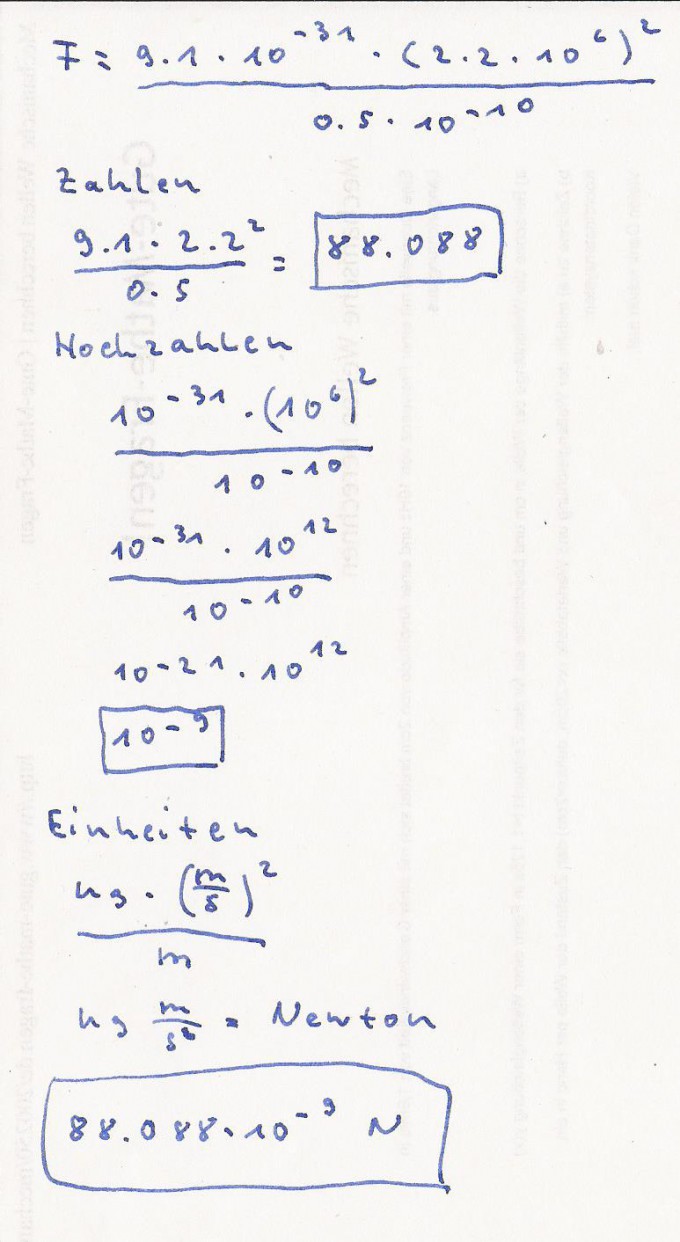 F = 9.1 · 10^-31 · (2.2 · 10^6)^2
0.5 · 10^-10
Zahlen
9.1 · 2.2^2
0.5
= 88.088
Hochzahlen
10^-31 · (10^6)^2
10^-10
10^-31 · 10^12
10^-10
10^-21 · 10^12
10^-9
Einheiten
kg · (m/s)^2
m
kg m/s^2 = Newton
88.088 · 10^-9 N